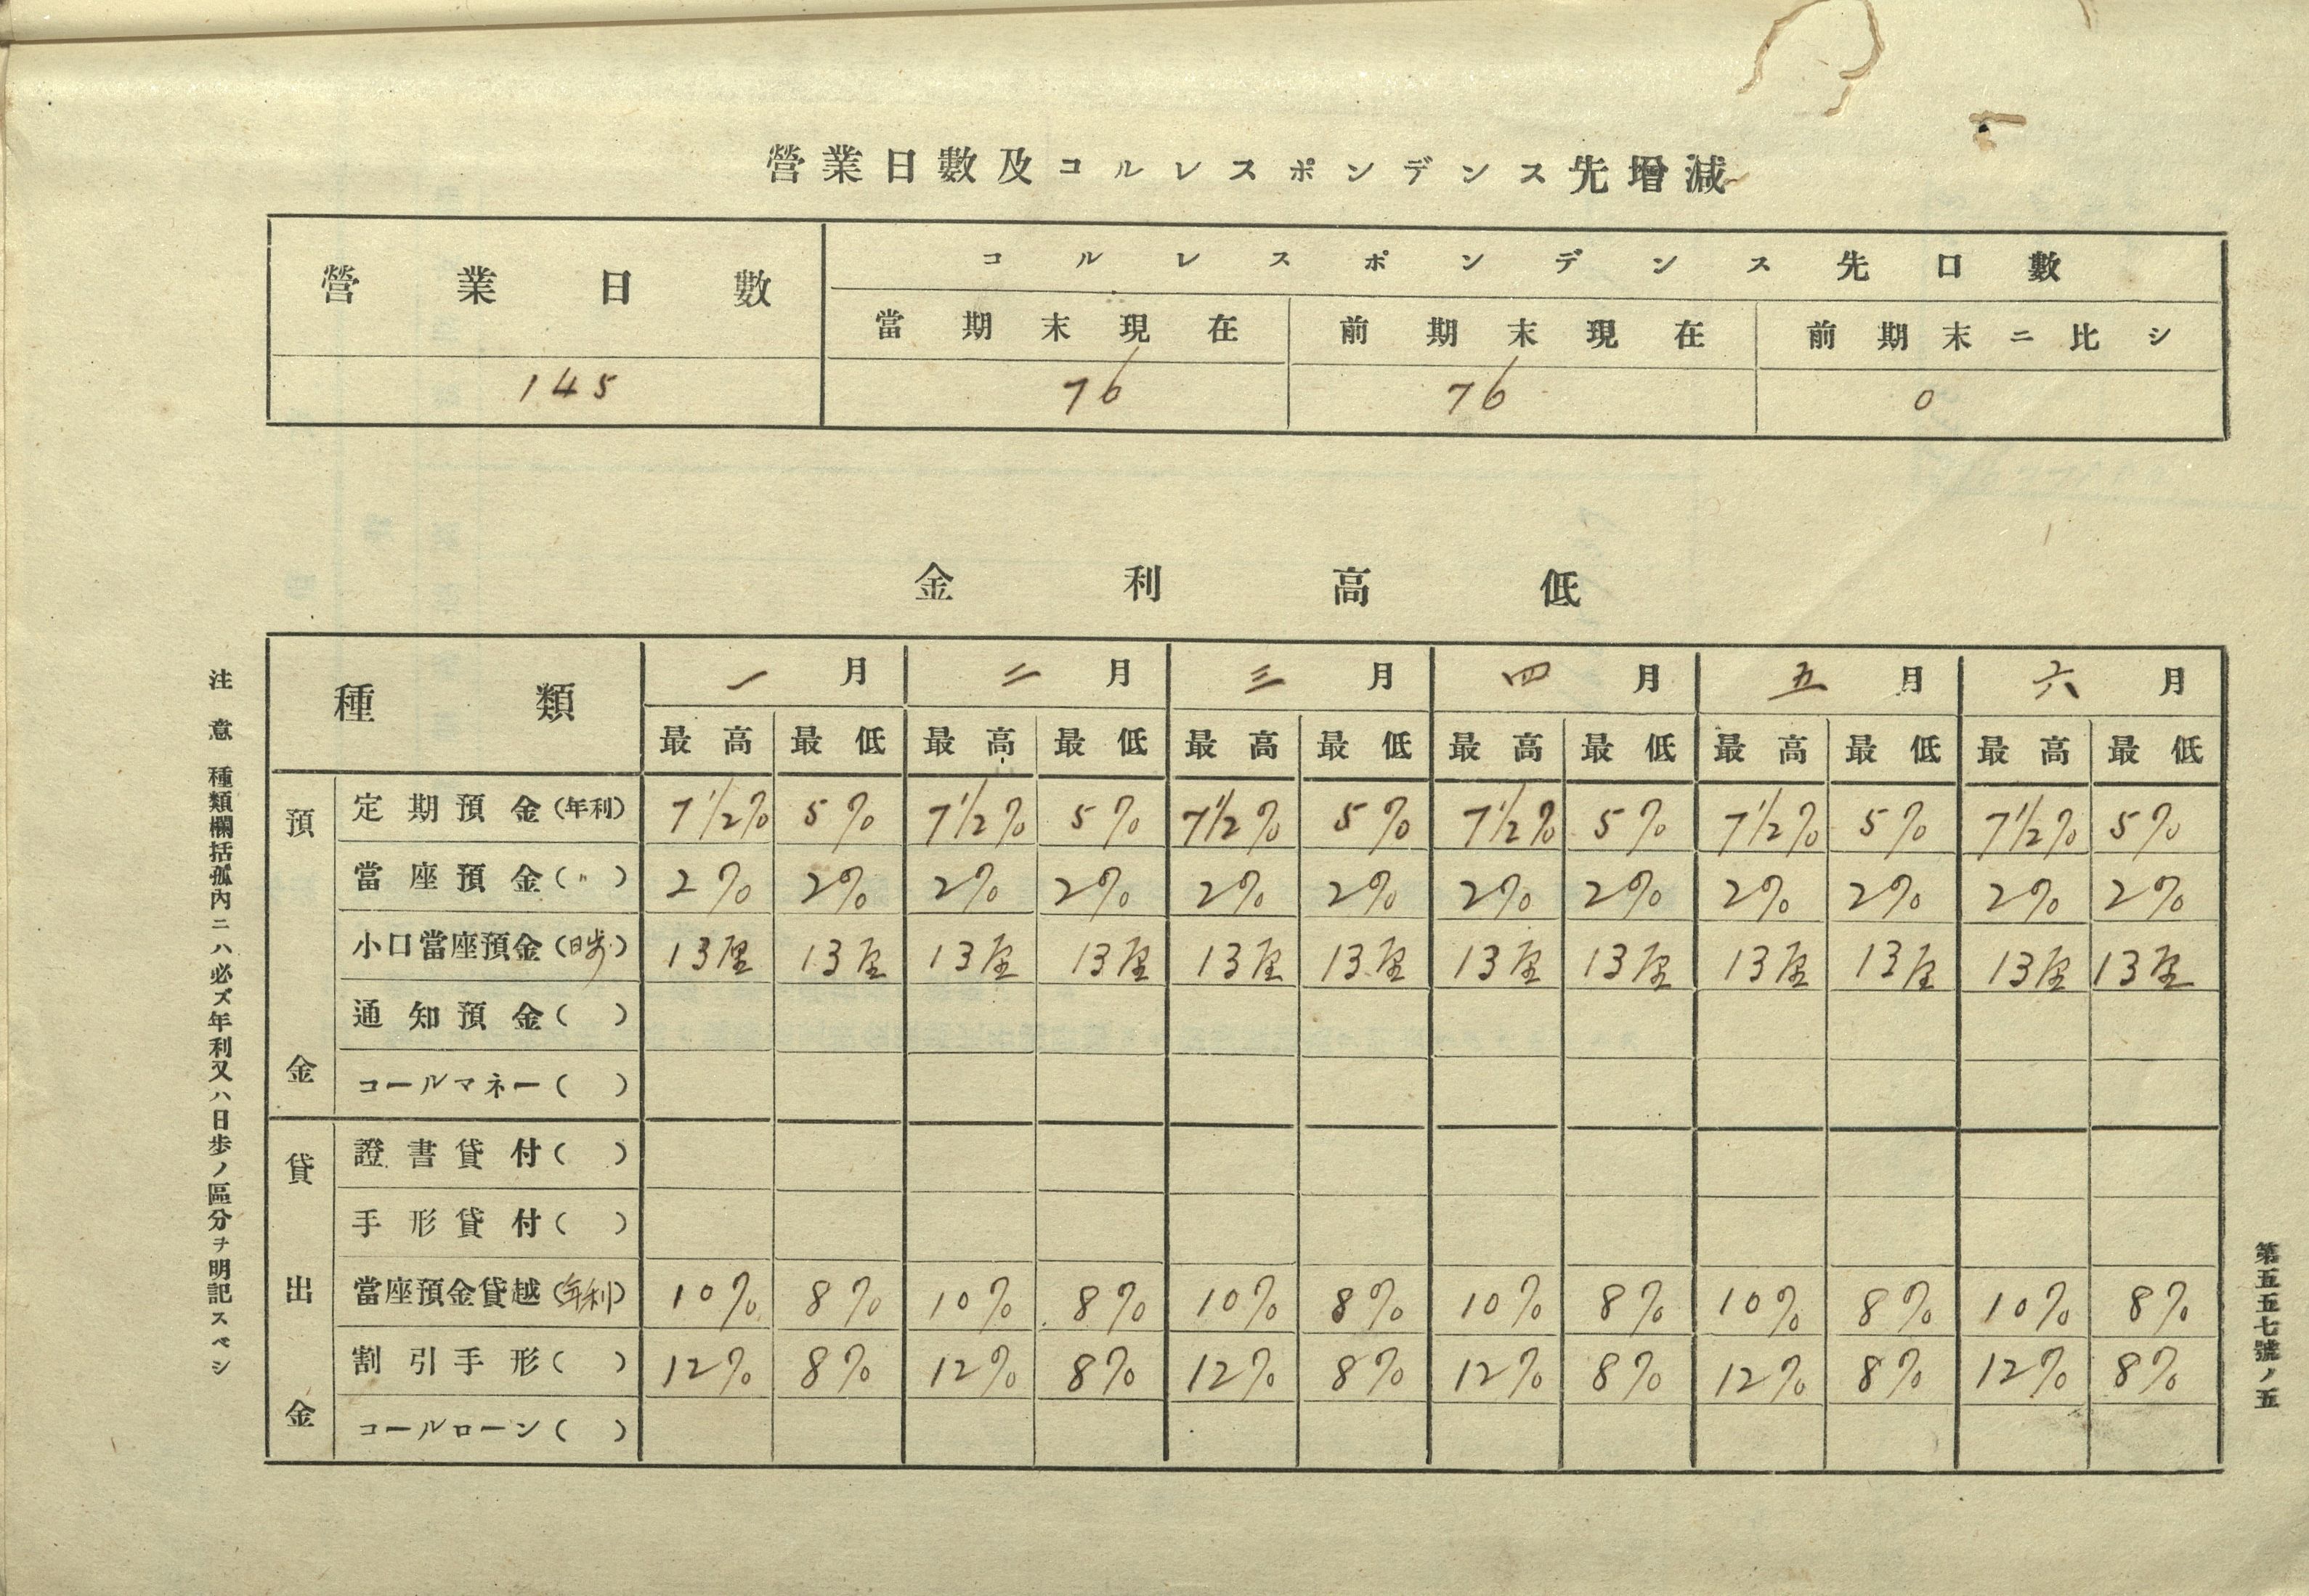 營業日數及コルレスポンデンス先增減
營業日數 コルレスポンデンス先口數
當期末現在 前期末現在 前期末ニ比シ
145 76 76 0
金利高低
種類 一月 二月 三月 四月 五月 六月
最高 最低 最高 最低 最高 最低 最高 最低 最高 最低 最高 最低
預金
定期預金(年利) 7½% 5% 7½% 5% 7½% 5% 7½% 5% 7½% 5% 7½% 5%
當座預金(〃) 2% 2% 2% 2% 2% 2% 2% 2% 2% 2% 2% 2%
小口當座預金(日歩) 13厘 13厘 13厘 13厘 13厘 13厘 13厘 13厘 13厘 13厘 13厘 13厘
通知預金( )
コールマネー( )
貸出金
證書貸付( )
手形貸付( )
當座預金貸越(年利) 10% 8% 10% 8% 10% 8% 10% 8% 10% 8% 10% 8%
割引手形( ) 12% 8% 12% 8% 12% 8% 12% 8% 12% 8% 12% 8%
コールローン( )
注意 種類欄括孤內ニハ必ズ年利又ハ日歩ノ區分ヲ明記スベシ
第五五五七號ノ五